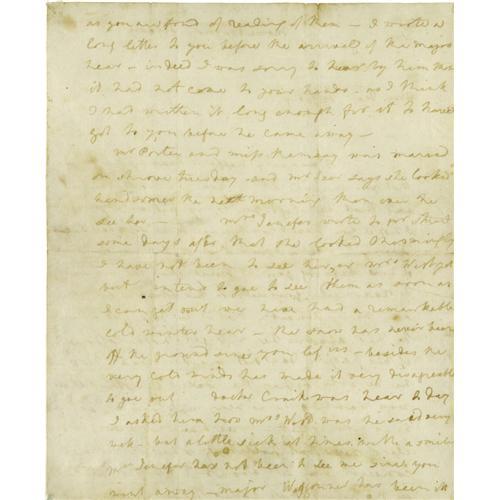 as you are fond of reading of them – I wrote a
long letter to you before the arrival of the major
hear – indeed I was sorry to hear by him that
it had not come to your hands – as I think
I had written it long enough for it to have
got to you before he came away –
mr Porter and miss Ramsay was maried
on shrove tuesday – and mr Lear says she looked
handsomer the next morning than ever he
see her – mrs Jenefer wrote to
some days after, that she looked charmingly
I have not been to see her, or mrs
but intend to goe to see them as soon as
I can get out we have had a remarkable
cold winter hear – the snow has never been
off the ground since you left us – besides the
very cold winds has made it very disagreable
to goe out doctor Craik was hear to day
I asked him how mrs West was he said very
well – but a little sick at times with a smile
mrs Jenefer has not been to see me since you
went away – major has been in